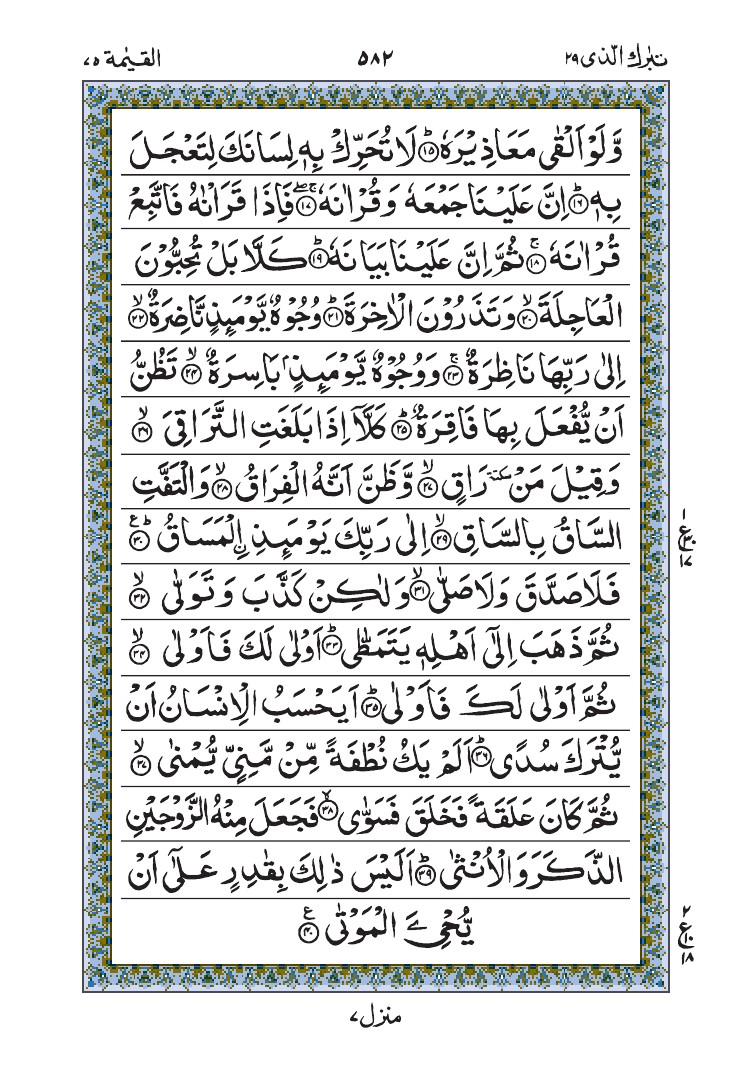 تبٰرك الذی ۲۹ ۵۸۲ القيٰمة ۷۵
وَّلَوْ اَلْقٰى مَعَاذِيْرَهٗ ؕ﴿۱۵﴾ لَا تُحَرِّكْ بِهٖ لِسَانَكَ لِتَعْجَلَ
بِهٖ ؕ﴿۱۶﴾ اِنَّ عَلَيْنَا جَمْعَهٗ وَ قُرْاٰنَهٗ ۚۖ﴿۱۷﴾ فَاِذَا قَرَاْنٰهُ فَاتَّبِعْ
قُرْاٰنَهٗ ۚ﴿۱۸﴾ ثُمَّ اِنَّ عَلَيْنَا بَيَانَهٗ ؕ﴿۱۹﴾ كَلَّا بَلْ تُحِبُّوْنَ
الْعَاجِلَةَ ۙ﴿۲۰﴾ وَ تَذَرُوْنَ الْاٰخِرَةَ ؕ﴿۲۱﴾ وُجُوْهٌ يَّوْمَىِٕذٍ نَّاضِرَةٌ ۙ﴿۲۲﴾
اِلٰى رَبِّهَا نَاظِرَةٌ ۚ﴿۲۳﴾ وَ وُجُوْهٌ يَّوْمَىِٕذٍۭ بَاسِرَةٌ ۙ﴿۲۴﴾ تَظُنُّ
اَنْ يُّفْعَلَ بِهَا فَاقِرَةٌ ؕ﴿۲۵﴾ كَلَّاۤ اِذَا بَلَغَتِ التَّرَاقِيَ ۙ﴿۲۶﴾
وَ قِيْلَ مَنْ ٚ سكتة رَاقٍ ۙ﴿۲۷﴾ وَّ ظَنَّ اَنَّهُ الْفِرَاقُ ۙ﴿۲۸﴾ وَ الْتَفَّتِ
السَّاقُ بِالسَّاقِ ۙ﴿۲۹﴾ اِلٰى رَبِّكَ يَوْمَىِٕذِ ِ۟الْمَسَاقُ ؕ٪﴿۳۰﴾
فَلَا صَدَّقَ وَ لَا صَلّٰى ۙ﴿۳۱﴾ وَ لٰكِنْ كَذَّبَ وَ تَوَلّٰى ۙ﴿۳۲﴾
ثُمَّ ذَهَبَ اِلٰۤى اَهْلِهٖ يَتَمَطّٰى ؕ﴿۳۳﴾ اَوْلٰى لَكَ فَاَوْلٰى ۙ﴿۳۴﴾
ثُمَّ اَوْلٰى لَكَ فَاَوْلٰى ؕ﴿۳۵﴾ اَيَحْسَبُ الْاِنْسَانُ اَنْ
يُّتْرَكَ سُدًى ؕ﴿۳۶﴾ اَلَمْ يَكُ نُطْفَةً مِّنْ مَّنِيٍّ يُّمْنٰى ۙ﴿۳۷﴾
ثُمَّ كَانَ عَلَقَةً فَخَلَقَ فَسَوّٰى ۙ﴿۳۸﴾ فَجَعَلَ مِنْهُ الزَّوْجَيْنِ
الذَّكَرَ وَ الْاُنْثٰى ؕ﴿۳۹﴾ اَلَيْسَ ذٰلِكَ بِقٰدِرٍ عَلٰۤى اَنْ
يُّحْیِۧ الْمَوْتٰى ٪﴿۴۰﴾
۱
ع ۳۰
۱۷
۲
ع ۱۰
۱۸
منزل ۷